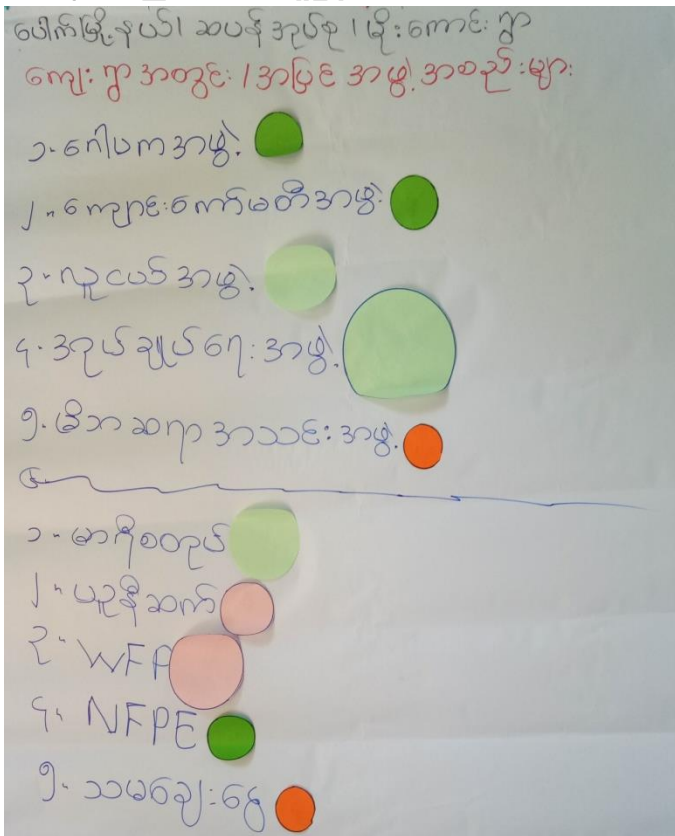 ပေါက်မြို့နယ်၊ ဆပန် အုပ်စု ၊ မိုးကောင်း ရွာ
ကျေး ရွာ အတွင်း / အပြင် အဖွဲ့ အစည်းများ
၁. ဂေါပကအဖွဲ့
၂. ကျောင်းကော်မတီအဖွဲ့
၃. လူငယ် အဖွဲ့
၄. အုပ်ချုပ်ရေးအဖွဲ့
၅. မိဘဆရာ အသင်းအဖွဲ့
၁. မာရီစတုပ်
၂. ယူနီဆက်
၃. WFP
၄. NFPE
၅. သမချေးငွေ